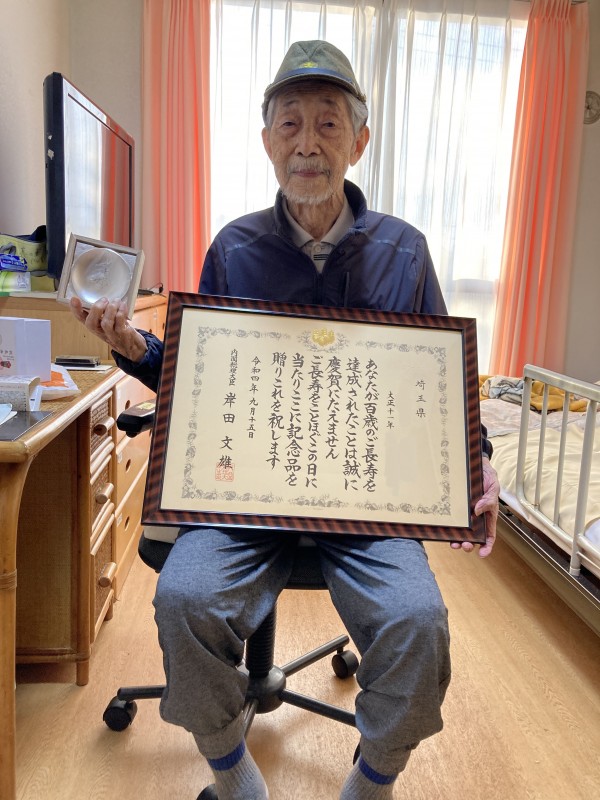 埼玉県
大正十一年
あなたが百歳のご長寿を
達成されたことは誠に
慶賀にたえません
ご長寿をことほぐこの日に
当たりここに記念品を
贈りこれを祝します
令和四年九月十五日
内閣総理大臣 岸田文雄